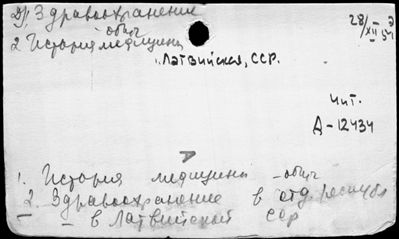 Др Здравоохранение
2 История медицины общ
Латвийская, ССР.
28/XII 54
Чит.
Д-12434
1. История медицины - общ
2. Здравоохранение в отд. республ
— — в Латвийской ССР